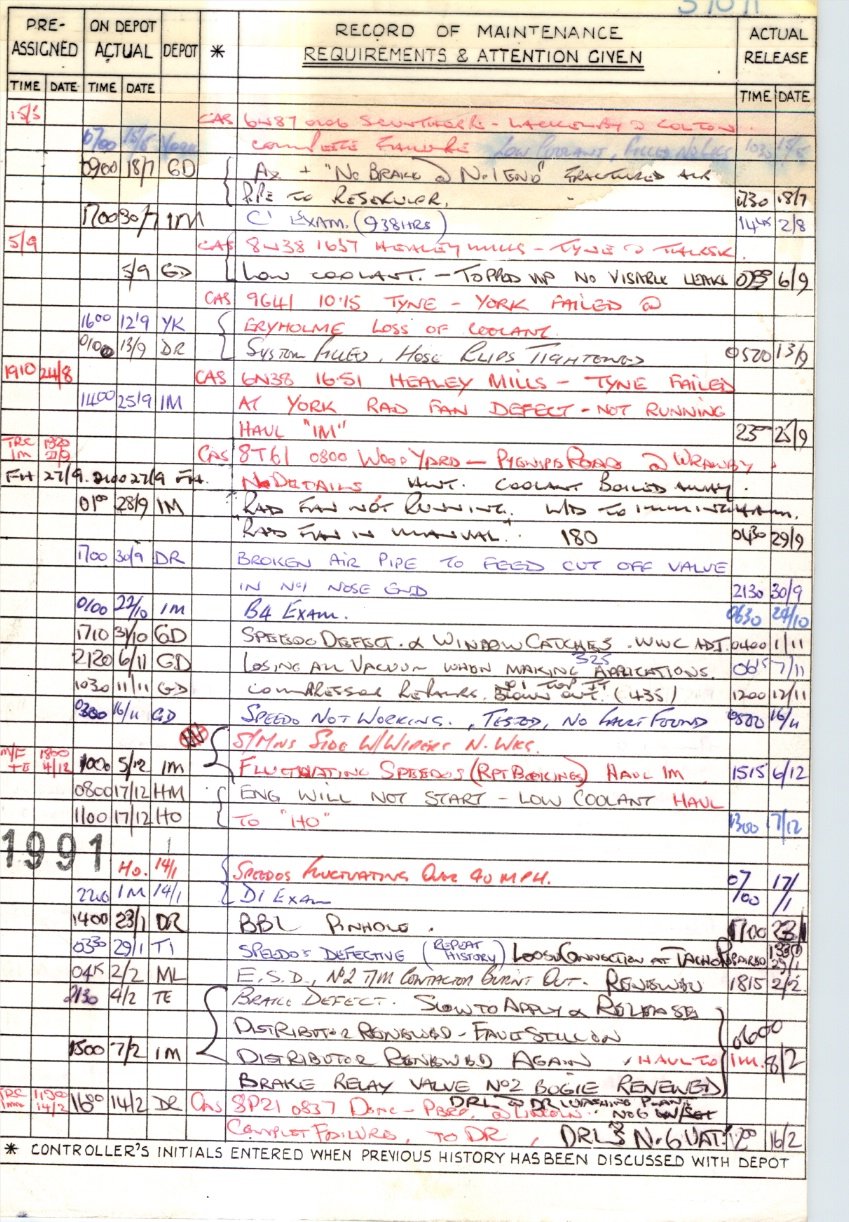 PRE-ASSIGNED ON DEPOT ACTUAL DEPOT * RECORD OF MAINTENANCE REQUIREMENTS & ATTENTION GIVEN ACTUAL RELEASE
TIME DATE TIME DATE TIME DATE
15/5 CAS 6N87 0106 SCUNTHORPE - LACKENBY @ COLTON.
0700 15/5 YORK COMPLETE FAILURE LOW COOLANT, FILLED NO LKS 1030 15/5
0900 18/7 GD AZ + "NO BRAKE @ NO.1 END" FRACTURED AIR
PIPE TO RESERVOIR. 1730 18/7
1700 30/7 IM C1 EXAM. (938HRS) 2/8
5/9 CAS 8N38 1637 HEALEY MILLS - TYNE @ THIRSK.
5/9 GD LOW COOLANT. - TOPPED UP NO VISABLE LEAKS 6/9
CAS 9G41 10.15 TYNE - YORK FAILED @
1600 12/9 YK ERYHOLME LOSS OF COOLANT.
0100 13/9 DR SYSTEM FILLED, HOSE CLIPS TIGHTENED 0520 13/9
1910 24/8 CAS 6N38 16.51 HEALEY MILLS - TYNE FAILED
1400 25/9 IM AT YORK RAD FAN DEFECT - NOT RUNNING
HAUL "IM" 2300 25/9
TRC IM 27/9 CAS 8T61 0800 WOOD YARD - ROAD @ WRAWBY.
FH 27/9. 27/9 FH. NO DETAILS COOLANT BOILED AWAY.
0100 28/9 IM "RAD FAN NOT RUNNING. W/D TO IMMINGHAM.
"RAD FAN IN MANUAL". 180 0430 29/9
1700 30/9 DR BROKEN AIR PIPE TO FEED CUT OFF VALVE
IN No1 NOSE END 2130 30/9
0100 22/10 IM B4 EXAM. 0630 24/10
1710 31/10 GD SPEEDO DEFECT. & WINDOW CATCHES. WWC ADJ. 0400 1/11
2120 6/11 GD LOSING ALL VACUUM WHEN MAKING APPLICATIONS. 325 0615 7/11
1030 11/11 GD COMPRESSOR REPAIRS. BLOWN OUT. (435) 1200 12/11
0300 16/11 GD SPEEDO NOT WORKING., TESTED, NO FAULT FOUND 0500 16/11
S/MNS SIDE W/WIPERS N. WKG.
M/F TE 1800 4/12 1000 5/12 IM FLUCTUATING SPEEDOS (RPT BOOKINGS) HAUL IM 1515 6/12
0800 17/12 HM ENG WILL NOT START - LOW COOLANT HAUL
1100 17/12 HO TO "HO" 1300 17/12
1991
HO. 14/1 SPEEDOS FLUCTUATING OVER 40 MPH. 07 17/
2200 IM 14/1 D1 EXAM /00 /1
1400 23/1 DR BBL PINHOLE. 1700 23/1
0330 29/1 TI SPEEDOS DEFECTIVE (REPEAT HISTORY) LOOSE CONNECTION AT TACHO REPAIRED 1330 29/1
0415 2/2 ML E.S.D, No2 T/M CONTACTOR BURNT OUT. RENEWED 1815 2/2
2130 4/2 TE BRAKE DEFECT. SLOW TO APPLY & RELEASE
DISTRIBUTOR RENEWED - FAULT STILL ON 0600
1500 7/2 IM DISTRIBUTOR RENEWED AGAIN, HAUL TO IM. 8/2
BRAKE RELAY VALVE No2 BOGIE RENEWED
TRC 1100 14/2 1600 14/2 DR CAS 8P21 0837 DONC - PBRO. @ LINCOLN.
COMPLETE FAILURE, TO DR, 1200 16/2
* CONTROLLER'S INITIALS ENTERED WHEN PREVIOUS HISTORY HAS BEEN DISCUSSED WITH DEPOT